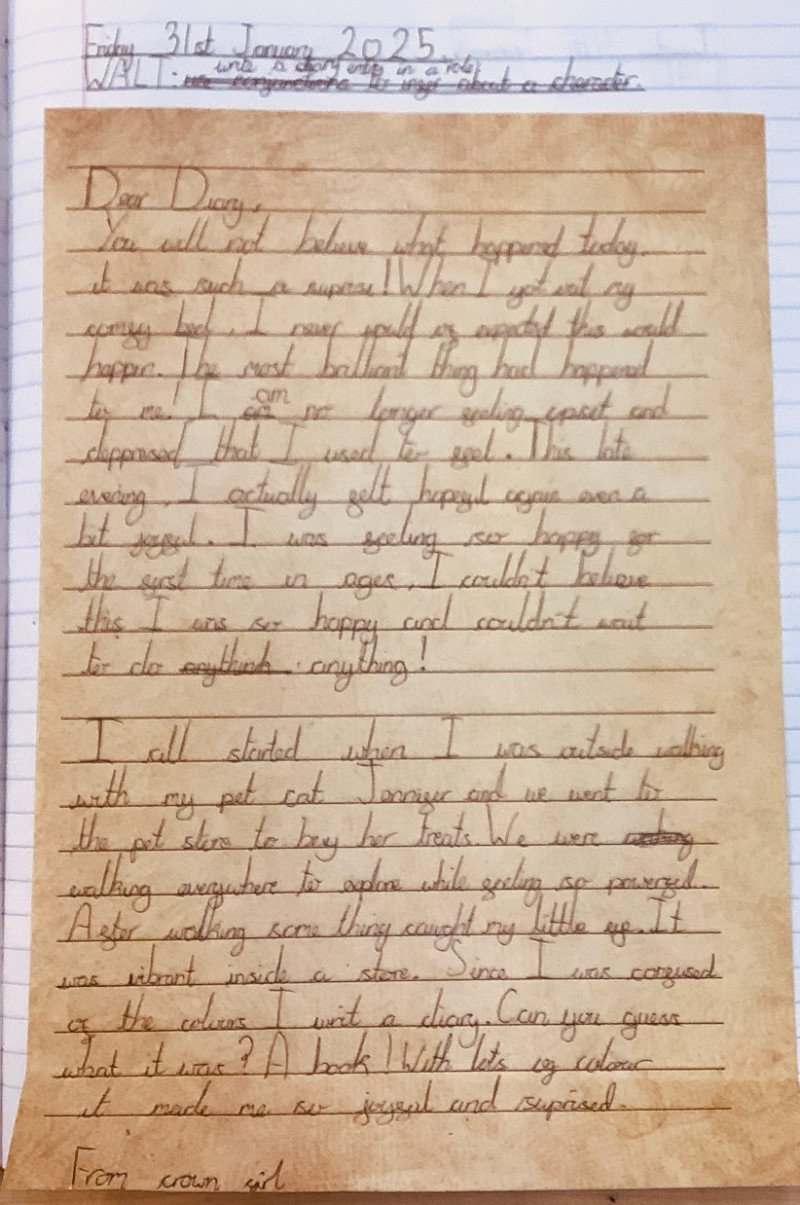 Friday 31st January 2025.
write a diary entry in a role
WALT: use conjunctions to infer about a character.
Dear Diary,
You will not believe what happened today.
it was such a suprise! When I got out my
comfy bed, I never would of expected this would
happen. The most brilliant thing had happened
am
to me! I no longer feeling upset and
deppresed that I used to feel. This late
evening, I actually felt hopeful again even a
bit joyful. I was feeling so happy for
the first time in ages, I couldn't believe
this I was so happy and couldn't wait
to do anythink anything!
I all started when I was outside walking
with my pet cat Jennifer and we went to
the pet store to buy her treats. We were
walking everywhere to explore while feeling so powerful.
After walking some thing caught my little eye. It
was vibrant inside a store. Since I was confused
of the colours I writ a diary. Can you guess
what it was? A book! With lots of colour
it made me so joyful and suprised.
From crown girl